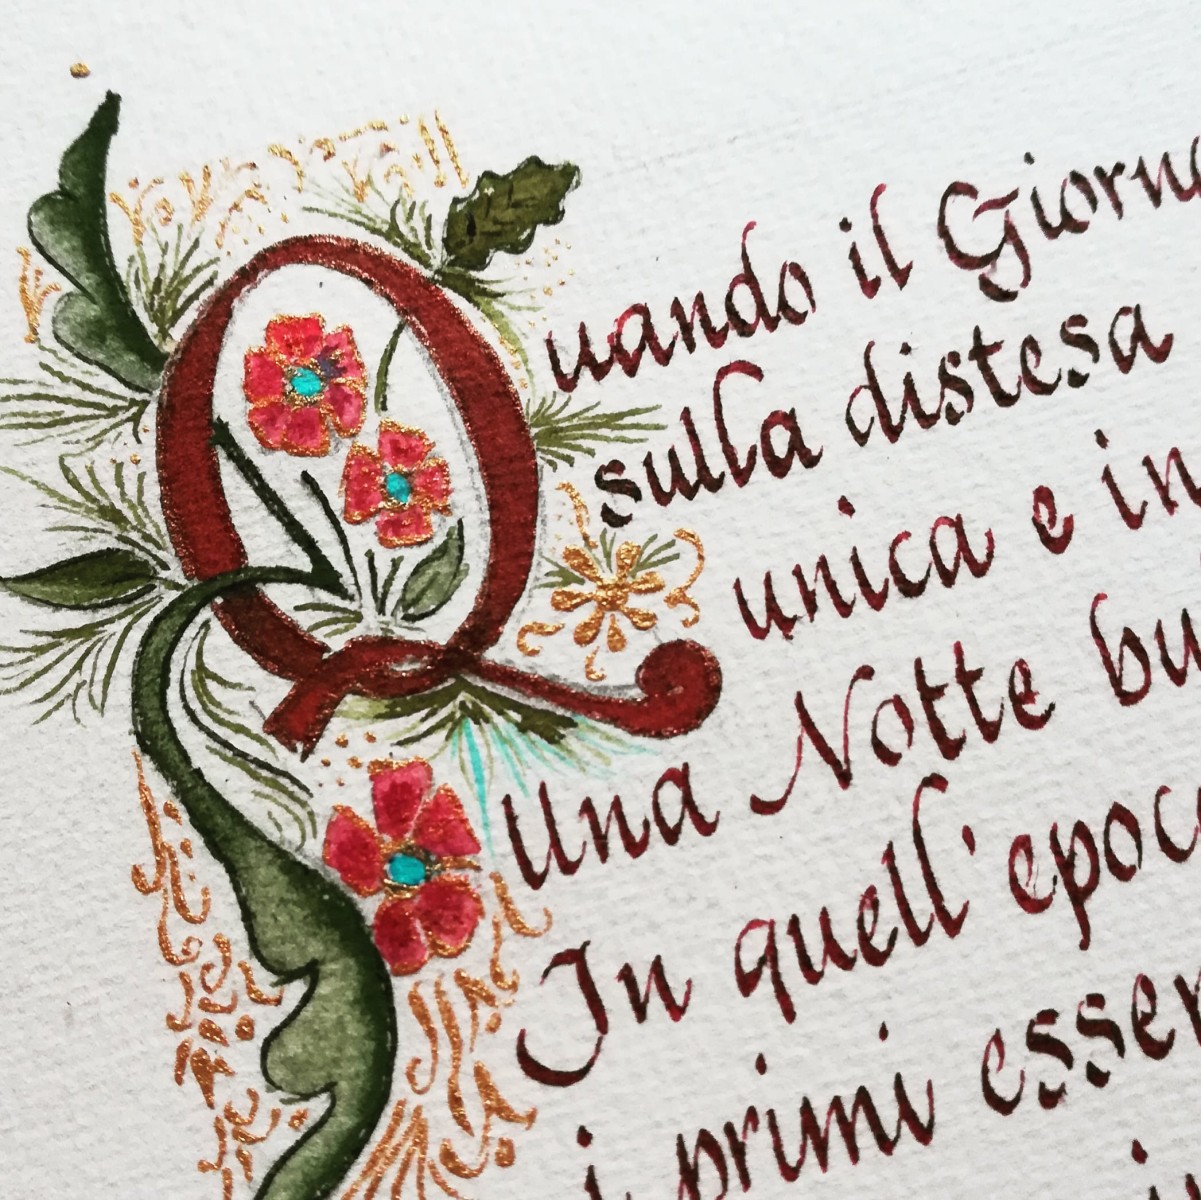 Quando il Giorno
sulla distesa
unica e in
Una Notte bu
In quell'epoc
i primi esser